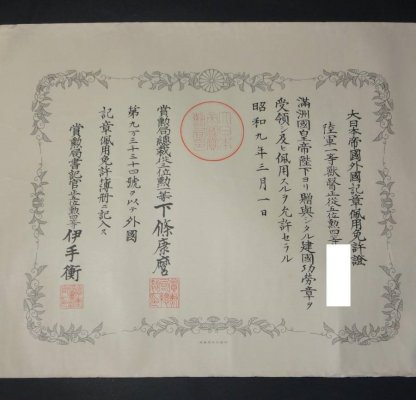 大日本帝國外國記章佩用免許證
陸軍一等獸醫正從五位勲四等
滿洲國皇帝陛下ヨリ贈與シタル建國功勞章ヲ
受領シ及ヒ佩用スルヲ允許セラル
昭和九年三月一日
賞勲局總裁從三位勲一等下條康麿
第九万三千三十四號ヲ以テ外國
記章佩用免許簿冊ニ記入ス
賞勲局書記官正五位勲四等伊手衡